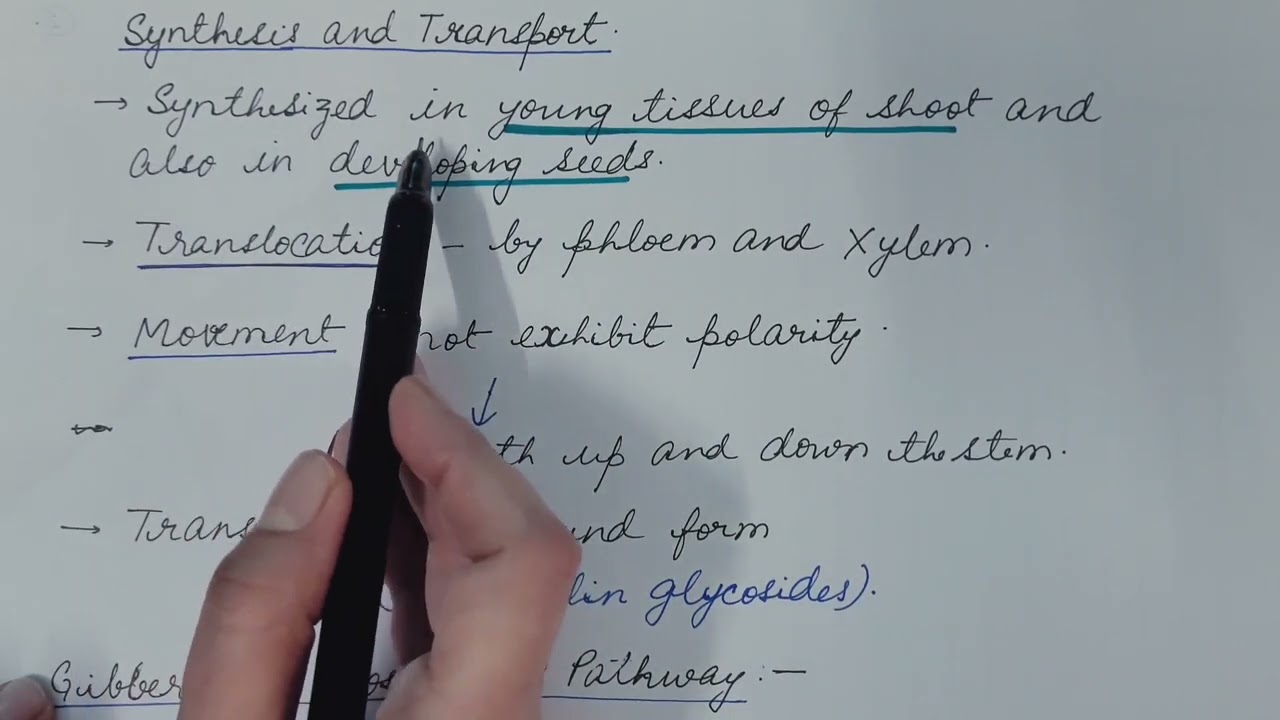 Synthesis and Transport.
→ Synthesized in young tissues of shoot and
also in developing seeds.
→ Translocation - by phloem and Xylem.
→ Movement not exhibit polarity.
↓
up and down the stem.
→ form
glycosides).
Pathway:-